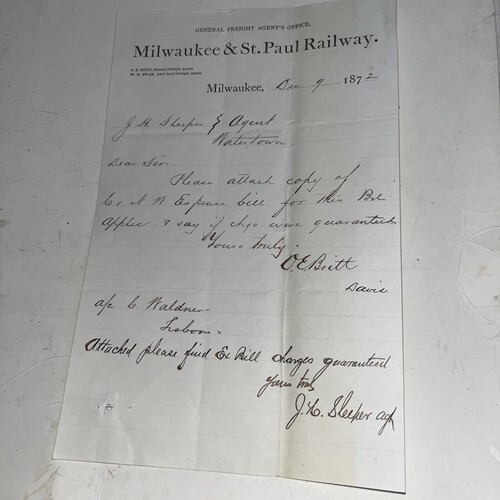 GENERAL FREIGHT AGENT'S OFFICE,
Milwaukee & St. Paul Railway.
O. E. BRITT, General Freight Agent.
W. G. SWAN, Ass't Gen'l Freight Agent.
Milwaukee, Dec 9 1872
J. H. Sleeper } Agent
Watertown
Dear Sir
Please attach copy of
C & N W Expense bill for this Bbl
Apples & say if chgs were guaranteed
Yours truly
O. E Britt
Davis
a/c C Waldner
Lisbon
Attached please find Ex Bill charges guaranteed
Yours truly
J. H. Sleeper agt